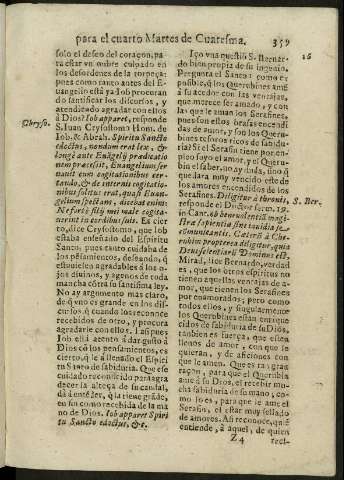 para el cuarto Martes de Cuaresma. 359
solo el deseo del coraçon, pa
ra estar vn ombre culpado en
los desordenes de la torpeza:
pues como tanto antes del E-
uangelio està ya Iob procuran
do santificar los discursos, y
atendiendo agradar con ellos
Chryso.
à Dios? Iob apparet, responde
S. Iuan Crysostomo Hom. de
Iob. & Abrah. Spiritu Sancto
edoctus, nondum erat lex, &
longè ante Euāgelÿ prædicatio
nem præcessit, Euangelium ser
uauit cum cogitationibus cer-
tando, & de internis cogitatio-
nibus solitus erat, quasi Euan-
gelium spectans, dicebat enim:
Ne fortè filÿ mei male cogita-
uerint in cordibus suis. Es cier
to, dize Crysostomo, que Iob
estaba enseñado del Espiritu
Santo, pues tanto cuidaba de
los pensamientos, deseando, q̃
estuviesen agradables à los o-
jos diuinos, y agenos de toda
mancha cōtra su santissima ley.
No ay argumento mas claro,
de q̃ vno es grande en los dis-
cursos, q̃ cuando los reconoce
recebidos de otro, y procura
agradarle con ellos. I as pues
Iob està atento à dar gusto à
Dios cō los pensamientos, es
cierto, q̃ le à llenado el Espiri
tu Santo de sabiduria. Que ese
cuidado reconocido para agra
decer la alteça de su caudal,
dà à entēder, q̃ la tiene grāde,
en su como recebida de la ma
no de Dios. Iob apparet Spiri
tu Sancto edoctus, &c.
16
I aqui vna question S. Bernar-
do bien propia de su ingenio.
Pregunta el Santo: como es
posible, q̃ los Querubines amen
à su acedor con las ventajas,
que merece ser amado, y con
las que le aman los Serafines,
pues estos son ardores encendi
dos de amor, y son los Queru-
bines tesoros ricos de sabidu-
ria? Si el Serafin tiene por em-
pleo suyo el amor, y el Queru-
bin el saber, no ay duda, sino q̃
quedara muy vencido este de
los amores encendidos de los
Serafines. Diligitur à thronis,
S. Ber.
responde el Doctor serm. 19.
in Cant. ob beneuolentiā magi-
stræ sapientiæ sine inuidia se
communicantis. Cæterū à Che-
rubim propterea diligitur, quia
Deus scientiarū Dominus est.
Mirad, dice Bernardo, verdad
es, que los otros espiritus no
tienen aquellas ventajas de a-
mor, que tienen los Serafines
por enamorados; pero como
todos ellos, y singularmente
los Querubines estàn enrique
cidos de sabiduria de su Dios,
tambien es fuerça, que estèn
llenos de amor, con que se
quieran, y de aficiones con
que le amen. Que es tan gran
raçon, para que el Querubin
ame à su Dios, el recebir mu-
cha sabiduria de su mano, co-
mo lo es, para que le ame el
Serafin, el estar muy sellado
de amores. Asi reconoce, quien
entiende, à aquel, de quien
Z 4
reci-